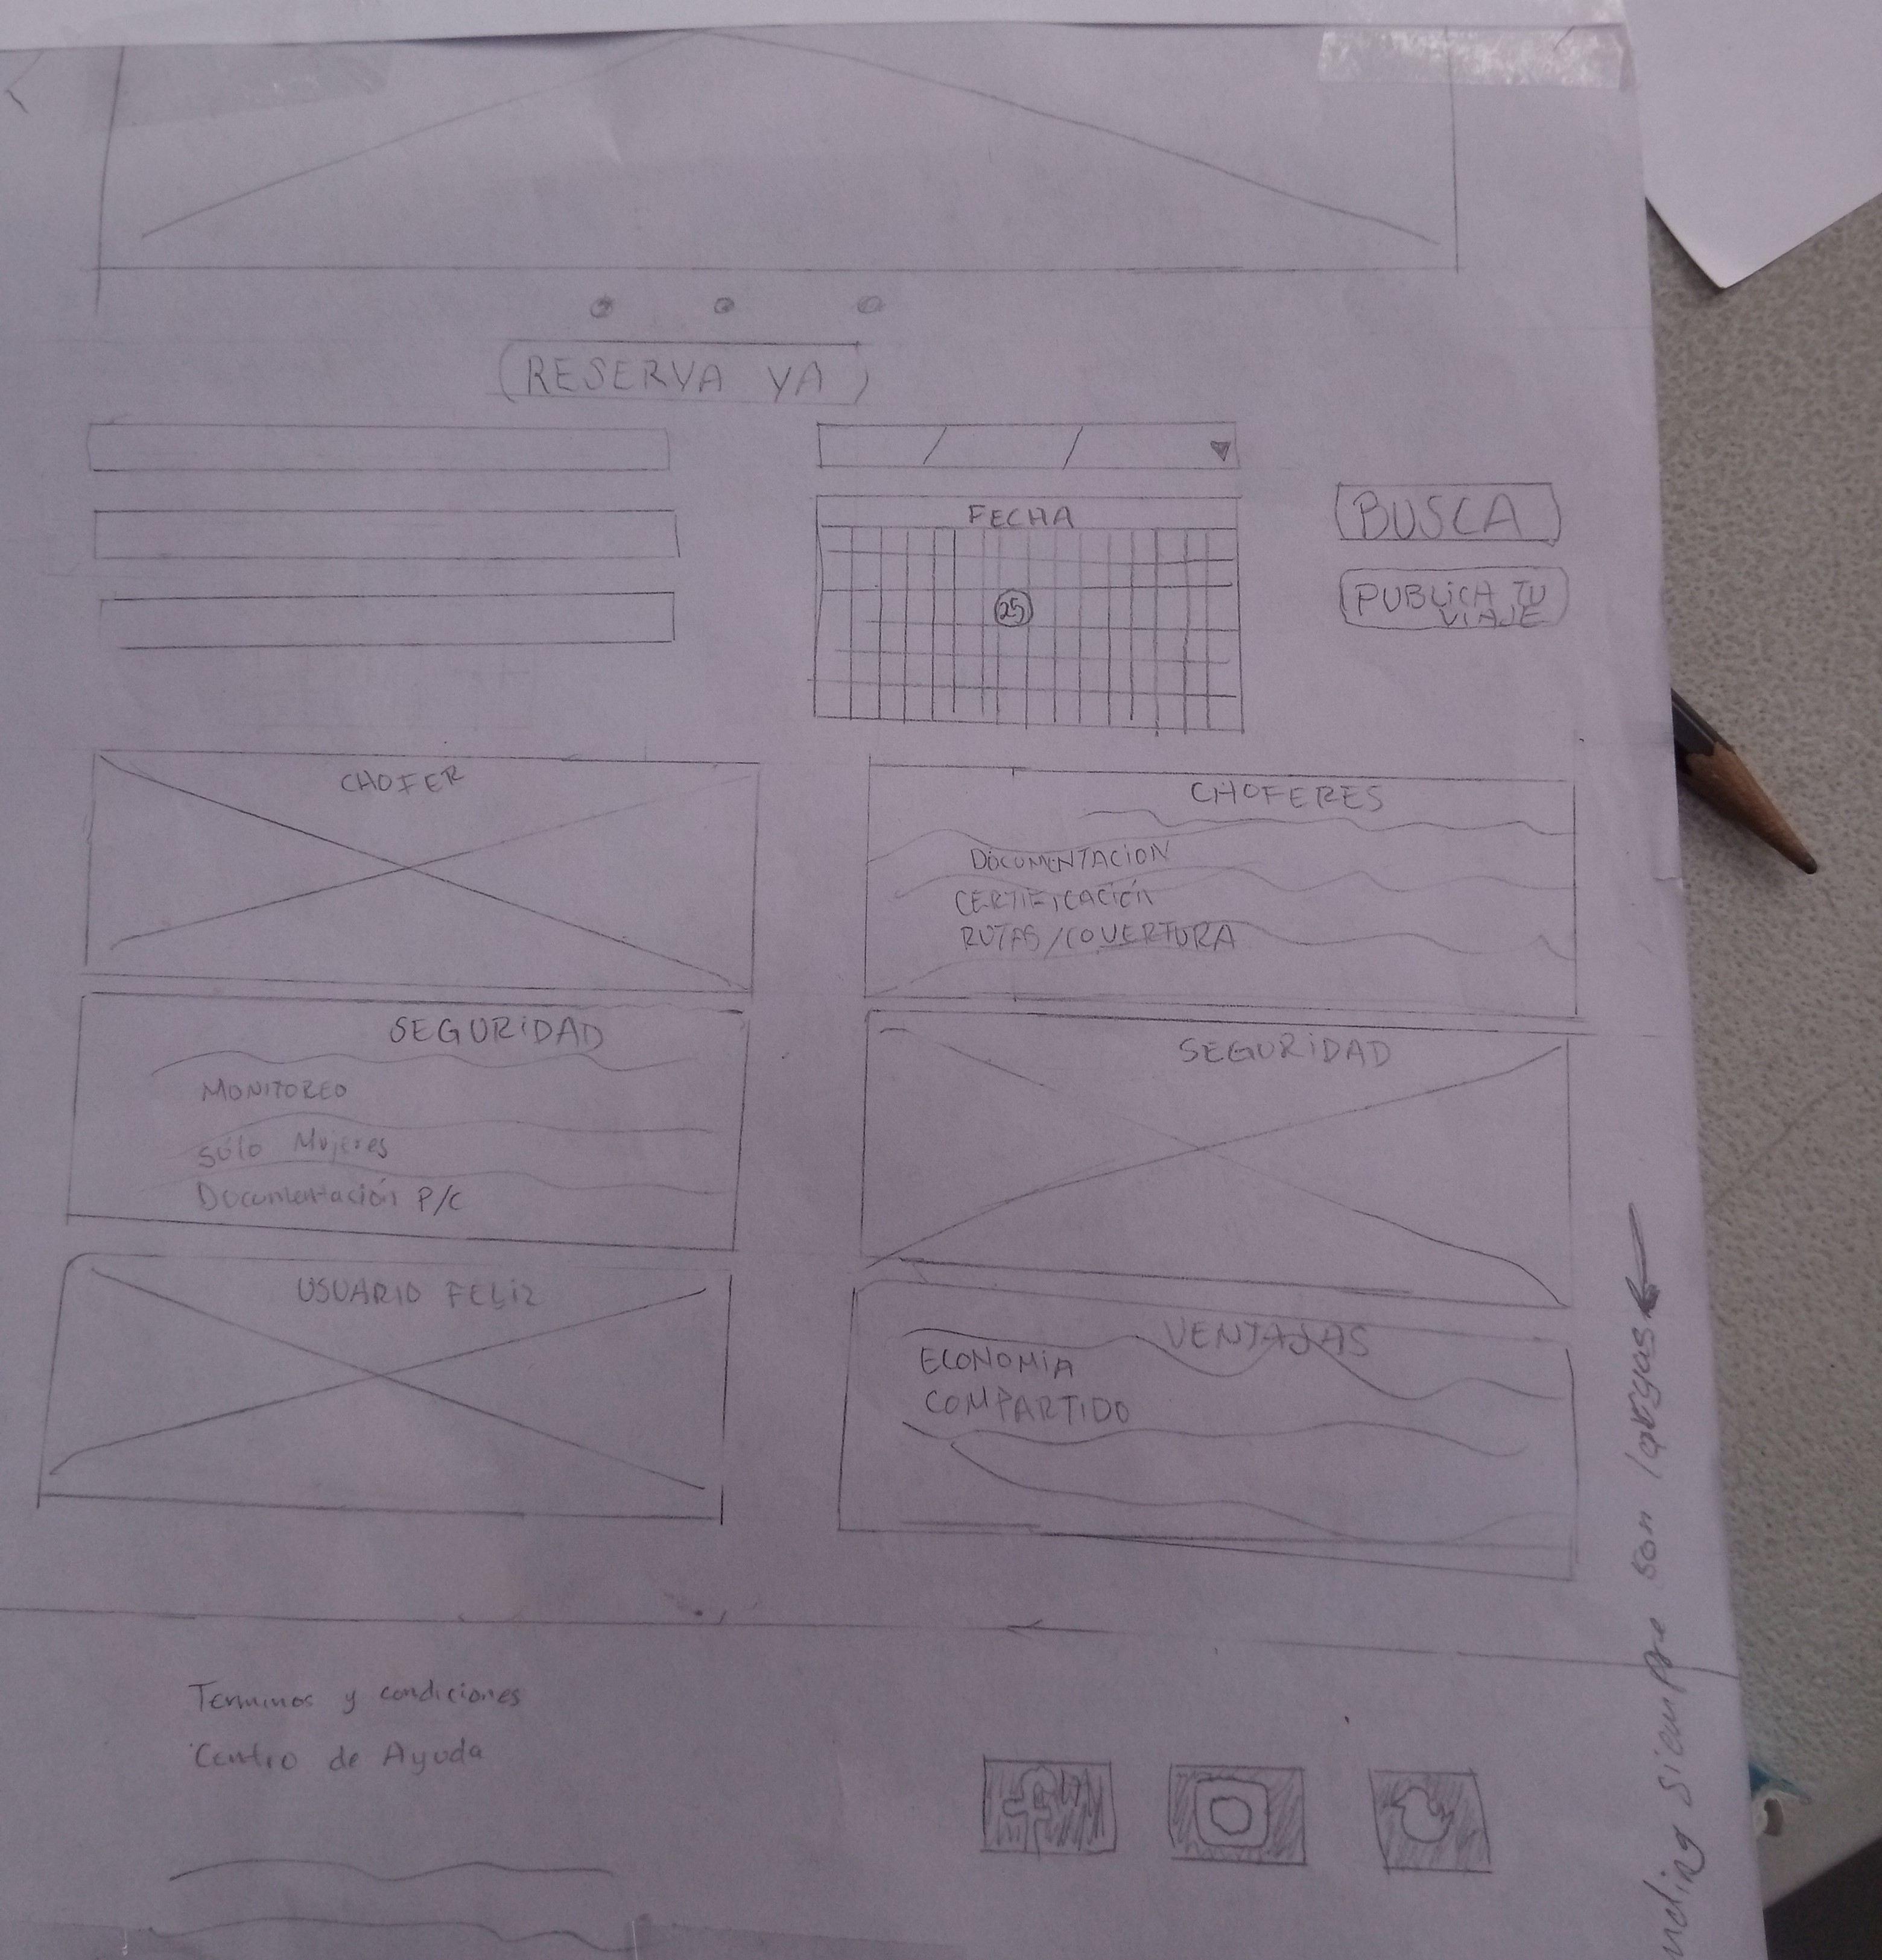 RESERVA YA
/ /
FECHA
25
BUSCA
PUBLICA TU
VIAJE
CHOFER
CHOFERES
DOCUMENTACION
CERTIFICACIÓN
RUTAS/COVERTURA
SEGURIDAD
MONITOREO
Sólo Mujeres
Documentación P/C
SEGURIDAD
USUARIO FELIZ
VENTAJAS
ECONOMIA
COMPARTIDO
Terminos y condiciones
Centro de Ayuda
f
nding siempre son largas